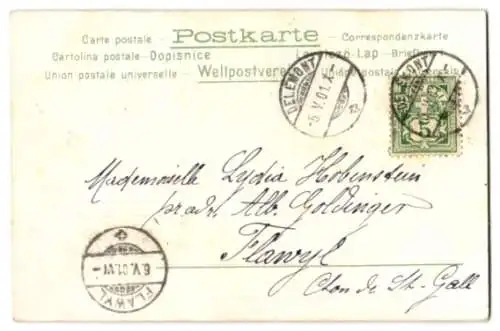 Carte postale - Postkarte - Correspondenzkarte
Cartolina postale - Dopisnice Levelező-Lap - Brief
Union postale universelle - Weltpostverein
DELÉMONT
-5.V.01.
DELÉMONT
5
Mademoiselle Lydia Hobenstein
pr adr. Alb. Goldinger
Flawyl
Cton de St-Gall
6.V.01.VI-
FLAWYL